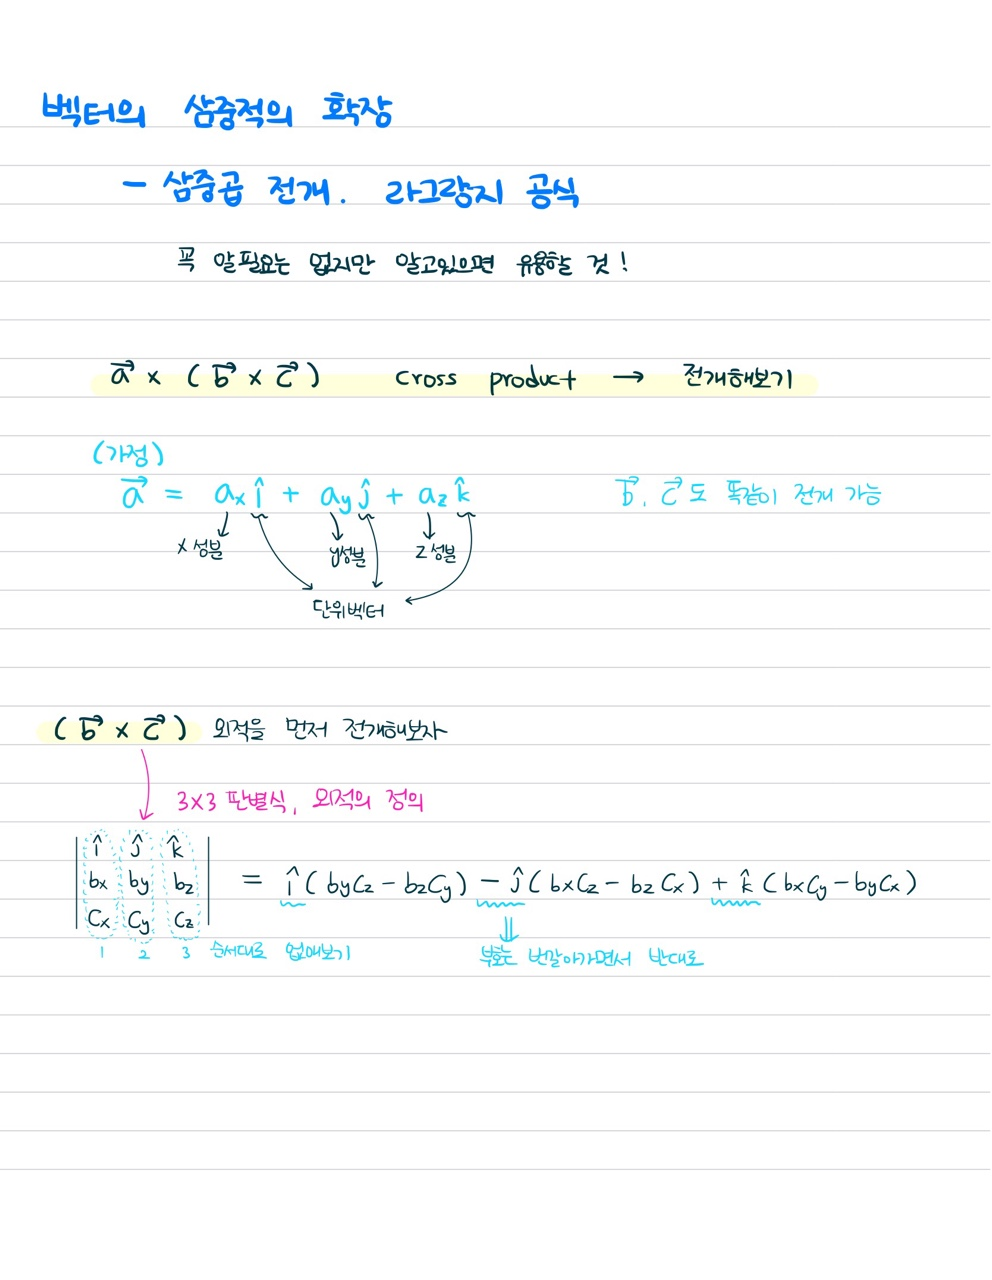 벡터의 삼중적의 확장
- 삼중곱 전개. 라그랑지 공식
꼭 알필요는 없지만 알고있으면 유용할 것!
a⃗ × (b⃗ × c⃗) cross product → 전개해보기
(가정)
a⃗ = aₓ î + a_y ĵ + a_z k̂ b⃗, c⃗도 똑같이 전개 가능
x 성분 y성분 z 성분
단위벡터
(b⃗ × c⃗) 외적을 먼저 전개해보자
3×3 판별식, 외적의 정의
î ĵ k̂
bx by bz = î(byCz - bzCy) - ĵ(bxCz - bzCx) + k̂(bxCy - byCx)
Cx Cy Cz
1 2 3 순서대로 없애보기 부호는 번갈아가면서 반대로